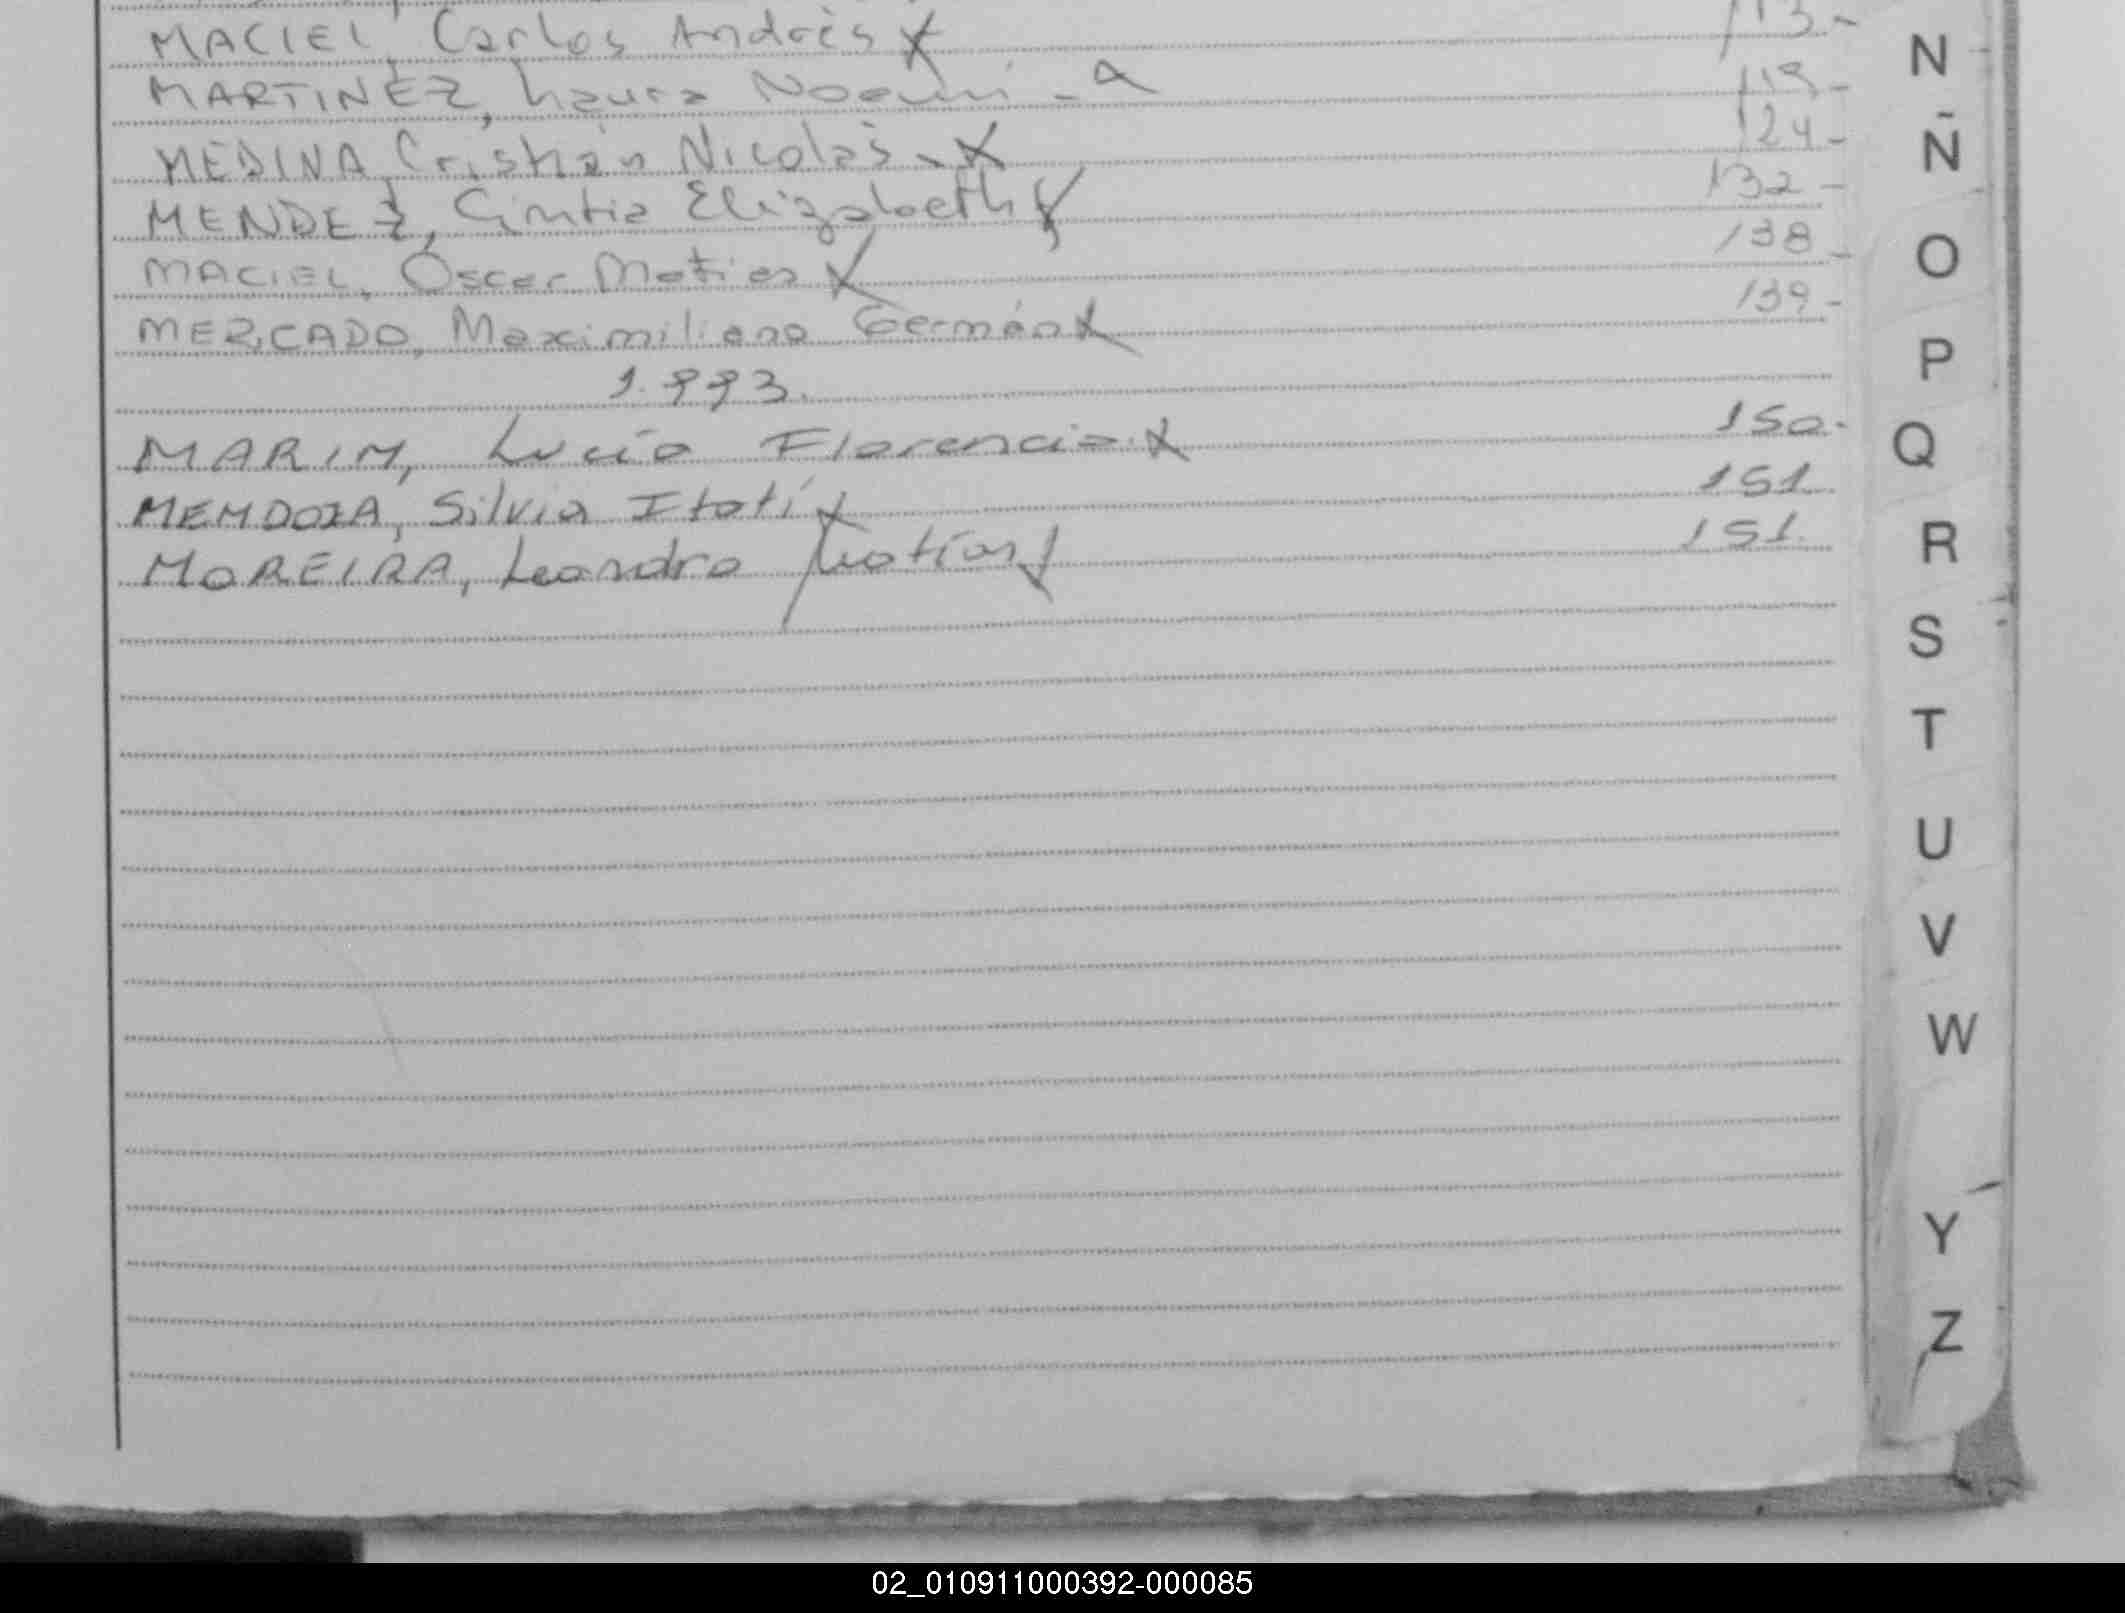 MACIEL, Carlos Andrés x 113-
MARTINEZ, Laura Noemi - a 119-
MEDINA, Cristhián Nicolás - x 124-
MENDEZ, Cintia Elizabeth x 132-
MACIEL, Oscar Matias x 138-
MERCADO, Maximiliano Germán x 139-
1.993.
MARIN, Lucía Florencia x 150.
MENDOZA, Silvia Itatí x 151
MOREIRA, Leandro Matías x 151.
N
Ñ
O
P
Q
R
S
T
U
V
W
Y
Z
02_010911000392-000085